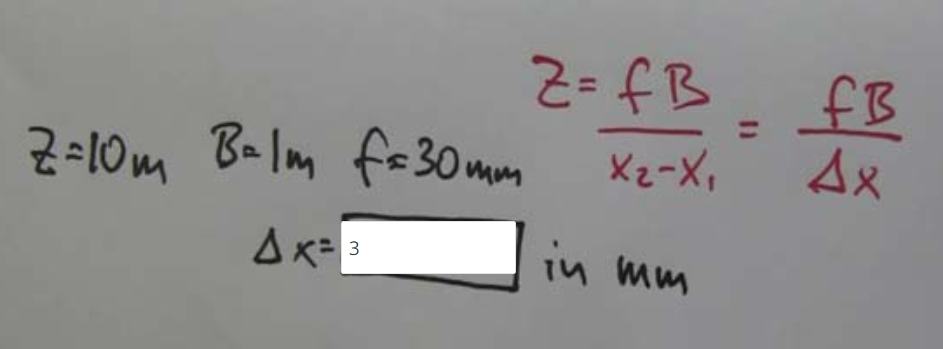 Z = fB / x₂-x₁ = fB / Δx
Z=10m B=1m f=30mm
Δx= 3 in mm